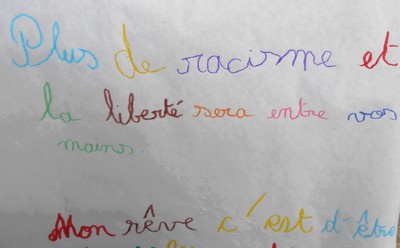 Plus de racisme et
la liberté sera entre vos
mains.
Mon rêve c'est d'être